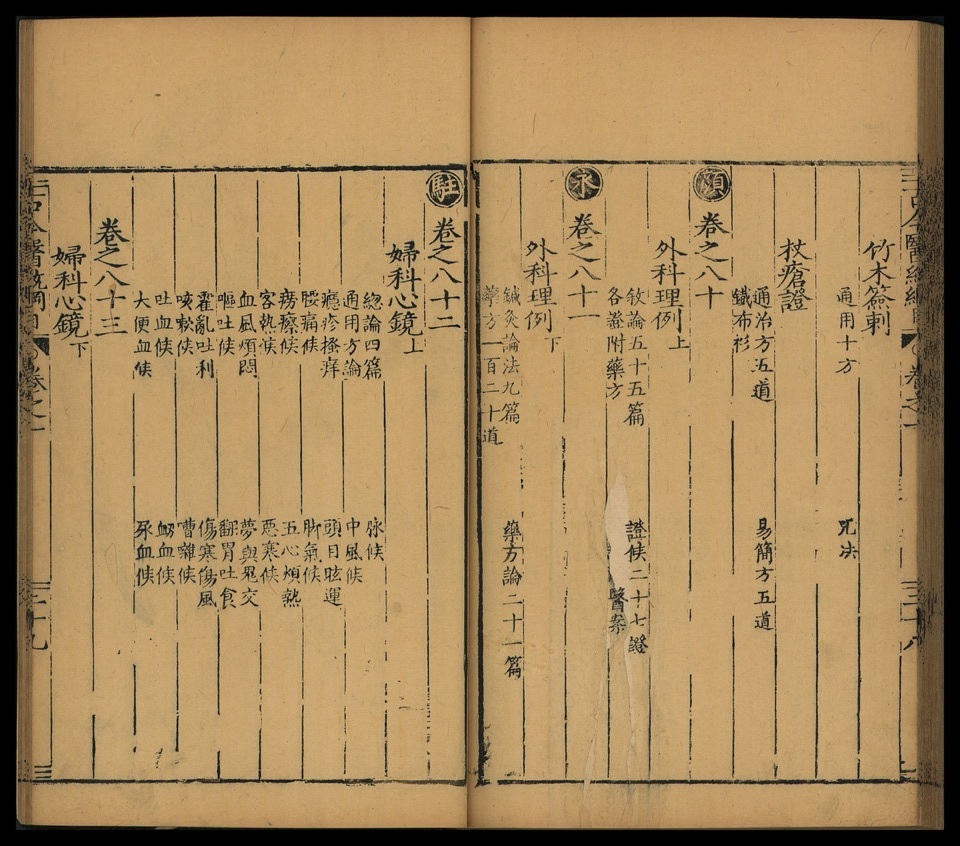 竹木簽刺
通用十方 咒法
杖瘡證
通治方五道 易簡方五道
鐵布衫
願 卷之八十
外科理例上
敘論五十五篇 證候二十七證
各證附藥方 醫案
永 卷之八十一
外科理例 下
鍼灸論法九篇 藥方論二十一篇
藥方一百二十道
駐 卷之八十二
婦科心鏡上
總論四篇 脉候
通用方論 中風候
癮疹搔痒 頭目昡運
腰痛候 脚氣候
癆瘵候 五心煩熱
客熱候 惡寒候
血風煩悶 夢與鬼交
嘔吐候 翻胃吐食
霍亂吐利 傷寒傷風
咳嗽候 嘈雜候
吐血候 衂血候
大便血候 尿血候
卷之八十三
婦科心鏡下
古今醫統綱目 卷之一 三十八
古今醫統綱目 卷之一 三十九